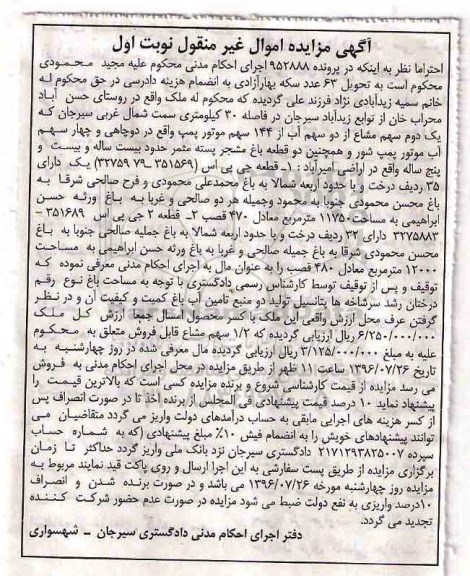 آگهی مزایده اموال غیر منقول نوبت اول
احتراما نظر به اینکه در پرونده ۹۵۲۸۸۸ اجرای احکام مدنی محکوم علیه مجید محمودی
محکوم است به تحویل ۶۳ عدد سکه بهارآزادی به انضمام هزینه دادرسی در حق محکوم له
خانم سمیه زیدآبادی نژاد فرزند علی گردیده که محکوم له ملک واقع در روستای حسن آباد
محراب خان از توابع زیدآباد سیرجان در فاصله ۳۰ کیلومتری سمت شمال غربی سیرجان که
یک دوم سهم مشاع از دو سهم آب از ۱۴۴ سهم موتور پمپ واقع در دوچاهی و چهار سهم
آب موتور پمپ شور و همچنین دو قطعه باغ مشجر پسته مثمر حدود بیست ساله و بیست و
پنج ساله واقع در اراضی امیرآباد: ۱ـ قطعه جی پی اس (۳۵۱۵۶۹ـ ۳۲۷۵۹۷۹) یک دارای
۳۵ ردیف درخت و با حدود اربعه شمالا به باغ محمدعلی محمودی و فرح صالحی شرقا به
باغ محسن محمودی جنوبا به محمود وجمیله هر دو صالحی و غربا به باغ ورثه حسن
ابراهیمی به مساحت ۱۱۷۵۰ مترمربع معادل ۴۷۰ قصب ۲ـ قطعه ۲ جی پی اس ۳۵۱۶۸۹ ـ
۳۲۷۵۸۸۳ دارای ۳۲ ردیف درخت و با حدود اربعه شمالا به باغ جمله صالحی جنوبا به باغ
محسن محمودی شرقا به باغ جمیله صالحی و غربا به باغ ورثه حسن ابراهیمی به مساحت
۱۲۰۰۰ مترمربع معادل ۴۸۰ قصب را به عنوان مال به اجرای احکام مدنی معرفی نموده که
توقیف و پس از توقیف توسط کارشناس رسمی دادگستری با توجه به مساحت باغ نوع رقم
درختان رشد سرشاخه ها پتانسیل تولید دو منبع تامین آب باغ کمیت و کیفیت آن و در نظر
گرفتن عرف محل ارزش واقعی این ملک با کسر محصول امسال جمعا ارزش کل ملک
۶/۲۵۰/۰۰۰/۰۰۰ ریال ارزیابی گردیده که ۱/۲ سهم مشاع قابل فروش متعلق به محکوم
علیه به مبلغ ۳/۱۲۵/۰۰۰/۰۰۰ ریال ارزیابی گردیده مال معرفی شده در روز چهارشنبه به
تاریخ ۱۳۹۶/۰۷/۲۶ ساعت ۱۱ ظهر از طریق مزایده در محل اجرای احکام مدنی به فروش
می رسد مزایده از قیمت کارشناسی شروع و برنده مزایده کسی است که بالاترین قیمت را
پیشنهاد نماید ۱۰ درصد قیمت پیشنهادی فی المجلس از برنده اخذ تا در صورت انصراف پس
از کسر هزینه های اجرایی مابقی به حساب درآمدهای دولت واریز می گردد متقاضیان می
توانند پیشنهادهای خویش را به انضمام فیش ۱۰٪ مبلغ پیشنهادی (که به شماره حساب
سپرده ۲۱۷۱۲۹۳۸۲۵۰۰۷ دادگستری سیرجان نزد بانک ملی واریز گردد حداکثر تا زمان
برگزاری مزایده از طریق پست سفارشی به این اجرا ارسال و روی پاکت قید نمایند مربوط به
مزایده روز چهارشنبه مورخه ۱۳۹۶/۰۷/۲۶ می باشد و در صورت برنده شدن و انصراف
۱۰درصد واریزی به نفع دولت ضبط می شود مزایده در صورت عدم حضور شرکت کننده
تجدید می گردد.
دفتر اجرای احکام مدنی دادگستری سیرجان ـ شهسواری